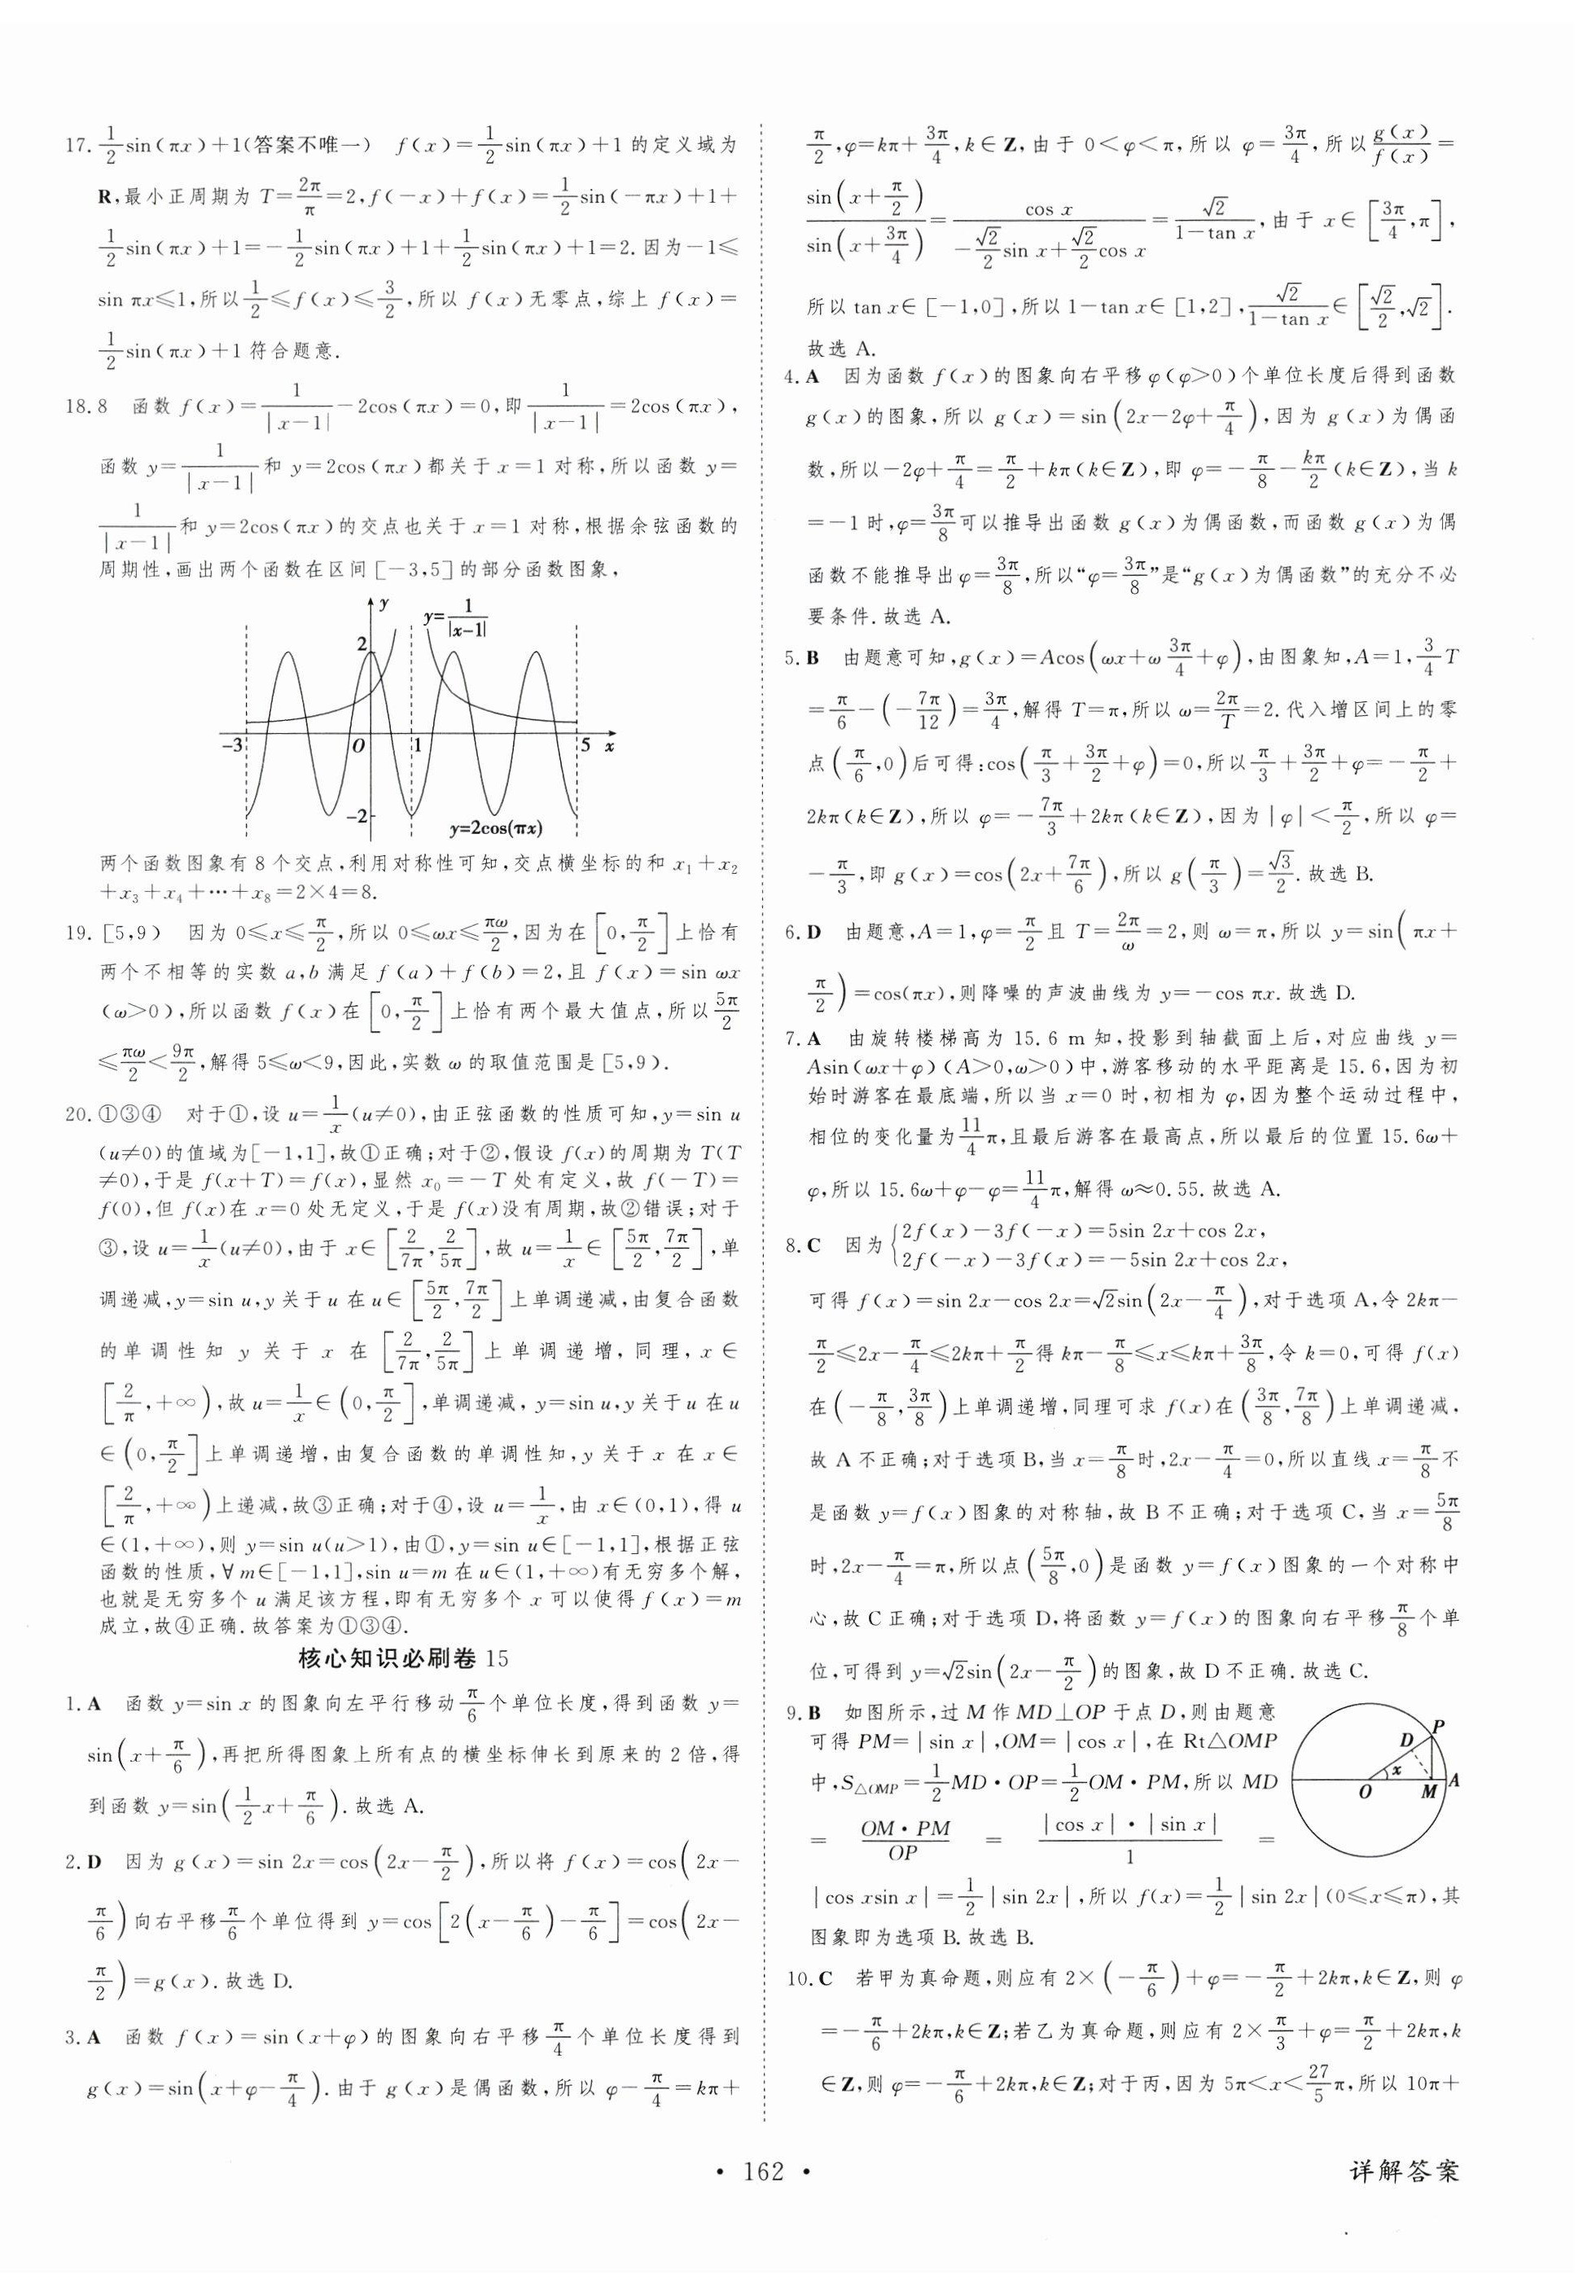 17. 1/2 sin(πx)+1(答案不唯一) f(x)=1/2 sin(πx)+1 的定义域为
R,最小正周期为 T=2π/π=2,f(-x)+f(x)=1/2 sin(-πx)+1+
1/2 sin(πx)+1=-1/2 sin(πx)+1+1/2 sin(πx)+1=2.因为-1≤
sin πx≤1,所以1/2≤f(x)≤3/2,所以 f(x)无零点,综上 f(x)=
1/2 sin(πx)+1 符合题意.
18.8 函数 f(x)=1/|x-1|-2cos(πx)=0,即1/|x-1|=2cos(πx),
函数 y=1/|x-1|和 y=2cos(πx)都关于 x=1 对称,所以函数 y=
1/|x-1|和 y=2cos(πx)的交点也关于 x=1 对称,根据余弦函数的
周期性,画出两个函数在区间[-3,5]的部分函数图象,
y
y=1/|x-1|
2
-3 O 1 5 x
-2
y=2cos(πx)
两个函数图象有 8 个交点,利用对称性可知,交点横坐标的和 x₁+x₂
+x₃+x₄+…+x₈=2×4=8.
19.[5,9) 因为 0≤x≤π/2,所以 0≤ωx≤πω/2,因为在[0,π/2]上恰有
两个不相等的实数 a,b 满足 f(a)+f(b)=2,且 f(x)=sin ωx
(ω>0),所以函数 f(x)在[0,π/2]上恰有两个最大值点,所以5π/2
≤πω/2<9π/2,解得 5≤ω<9,因此,实数 ω 的取值范围是[5,9).
20.①③④ 对于①,设 u=1/x(u≠0),由正弦函数的性质可知,y=sin u
(u≠0)的值域为[-1,1],故①正确;对于②,假设 f(x)的周期为 T(T
≠0),于是 f(x+T)=f(x),显然 x₀=-T 处有定义,故 f(-T)=
f(0),但 f(x)在 x=0 处无定义,于是 f(x)没有周期,故②错误;对于
③,设 u=1/x(u≠0),由于 x∈[2/7π,2/5π],故 u=1/x∈[5π/2,7π/2],单
调递减,y=sin u,y 关于 u 在 u∈[5π/2,7π/2]上单调递减,由复合函数
的单调性知 y 关于 x 在 [2/7π,2/5π] 上单调递增,同理,x∈
[2/π,+∞),故 u=1/x∈(0,π/2],单调递减,y=sin u,y 关于 u 在 u
∈(0,π/2]上单调递增,由复合函数的单调性知,y 关于 x 在 x∈
[2/π,+∞)上递减,故③正确;对于④,设 u=1/x,由 x∈(0,1),得 u
∈(1,+∞),则 y=sin u(u>1),由①,y=sin u∈[-1,1],根据正弦
函数的性质,∀m∈[-1,1],sin u=m 在 u∈(1,+∞)有无穷多个解,
也就是无穷多个 u 满足该方程,即有无穷多个 x 可以使得 f(x)=m
成立,故④正确.故答案为①③④.
核心知识必刷卷 15
1.A 函数 y=sin x 的图象向左平行移动π/6个单位长度,得到函数 y=
sin(x+π/6),再把所得图象上所有点的横坐标伸长到原来的 2 倍,得
到函数 y=sin(1/2 x+π/6).故选 A.
2.D 因为 g(x)=sin 2x=cos(2x-π/2),所以将 f(x)=cos(2x-
π/6)向右平移π/6个单位得到 y=cos[2(x-π/6)-π/6]=cos(2x-
π/2)=g(x).故选 D.
3.A 函数 f(x)=sin(x+φ)的图象向右平移π/4个单位长度得到
g(x)=sin(x+φ-π/4).由于 g(x)是偶函数,所以 φ-π/4=kπ+
π/2,φ=kπ+3π/4,k∈Z,由于 0<φ<π,所以 φ=3π/4,所以g(x)/f(x)=
sin(x+π/2)/sin(x+3π/4)=cos x/(-√2/2 sin x+√2/2 cos x)=√2/(1-tan x),由于 x∈[3π/4,π],
所以 tan x∈[-1,0],所以 1-tan x∈[1,2],√2/(1-tan x)∈[√2/2,√2].
故选 A.
4.A 因为函数 f(x)的图象向右平移 φ(φ>0)个单位长度后得到函数
g(x)的图象,所以 g(x)=sin(2x-2φ+π/4),因为 g(x)为偶函
数,所以-2φ+π/4=π/2+kπ(k∈Z),即 φ=-π/8-kπ/2(k∈Z),当 k
=-1 时,φ=3π/8可以推导出函数 g(x)为偶函数,而函数 g(x)为偶
函数不能推导出 φ=3π/8,所以“φ=3π/8”是“g(x)为偶函数”的充分不必
要条件.故选 A.
5.B 由题意可知,g(x)=Acos(ωx+ω3π/4+φ),由图象知,A=1,3/4 T
=π/6-(-7π/12)=3π/4,解得 T=π,所以 ω=2π/T=2.代入增区间上的零
点(π/6,0)后可得:cos(π/3+3π/2+φ)=0,所以π/3+3π/2+φ=-π/2+
2kπ(k∈Z),所以 φ=-7π/3+2kπ(k∈Z),因为|φ|<π/2,所以 φ=
-π/3,即 g(x)=cos(2x+7π/6),所以 g(π/3)=√3/2.故选 B.
6.D 由题意,A=1,φ=π/2且 T=2π/ω=2,则 ω=π,所以 y=sin(πx+
π/2)=cos(πx),则降噪的声波曲线为 y=-cos πx.故选 D.
7.A 由旋转楼梯高为 15.6 m 知,投影到轴截面上后,对应曲线 y=
Asin(ωx+φ)(A>0,ω>0)中,游客移动的水平距离是 15.6,因为初
始时游客在最底端,所以当 x=0 时,初相为 φ,因为整个运动过程中,
相位的变化量为11/4π,且最后游客在最高点,所以最后的位置 15.6ω+
φ,所以 15.6ω+φ-φ=11/4π,解得 ω≈0.55.故选 A.
8.C 因为{2f(x)-3f(-x)=5sin 2x+cos 2x,
2f(-x)-3f(x)=-5sin 2x+cos 2x,
可得 f(x)=sin 2x-cos 2x=√2sin(2x-π/4),对于选项 A,令 2kπ-
π/2≤2x-π/4≤2kπ+π/2得 kπ-π/8≤x≤kπ+3π/8,令 k=0,可得 f(x)
在(-π/8,3π/8)上单调递增,同理可求 f(x)在(3π/8,7π/8)上单调递减,
故 A 不正确;对于选项 B,当 x=π/8时,2x-π/4=0,所以直线 x=π/8不
是函数 y=f(x)图象的对称轴,故 B 不正确;对于选项 C,当 x=5π/8
时,2x-π/4=π,所以点(5π/8,0)是函数 y=f(x)图象的一个对称中
心,故 C 正确;对于选项 D,将函数 y=f(x)的图象向右平移π/8个单
位,可得到 y=√2sin(2x-π/2)的图象,故 D 不正确.故选 C.
9.B 如图所示,过 M 作 MD⊥OP 于点 D,则由题意
可得 PM=|sin x|,OM=|cos x|,在 Rt△OMP
中,S△OMP=1/2 MD·OP=1/2 OM·PM,所以 MD
= OM·PM/OP = |cos x|·|sin x|/1 =
P
D
x
O M A
|cos xsin x|=1/2|sin 2x|,所以 f(x)=1/2|sin 2x|(0≤x≤π),其
图象即为选项 B.故选 B.
10.C 若甲为真命题,则应有 2×(-π/6)+φ=-π/2+2kπ,k∈Z,则 φ
=-π/6+2kπ,k∈Z;若乙为真命题,则应有 2×π/3+φ=π/2+2kπ,k
∈Z,则 φ=-π/6+2kπ,k∈Z;对于丙,因为 5π<x<27/5π,所以 10π+
· 162 ·
详解答案